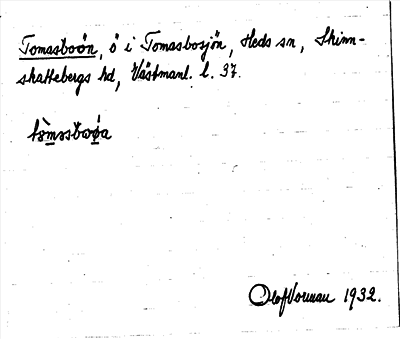 Tomasboön, ö i Tomasbosjön, Heds sn, Skinn-
skattebergs hd, Västmanl. l. 37.
Olof Vorman 1932.